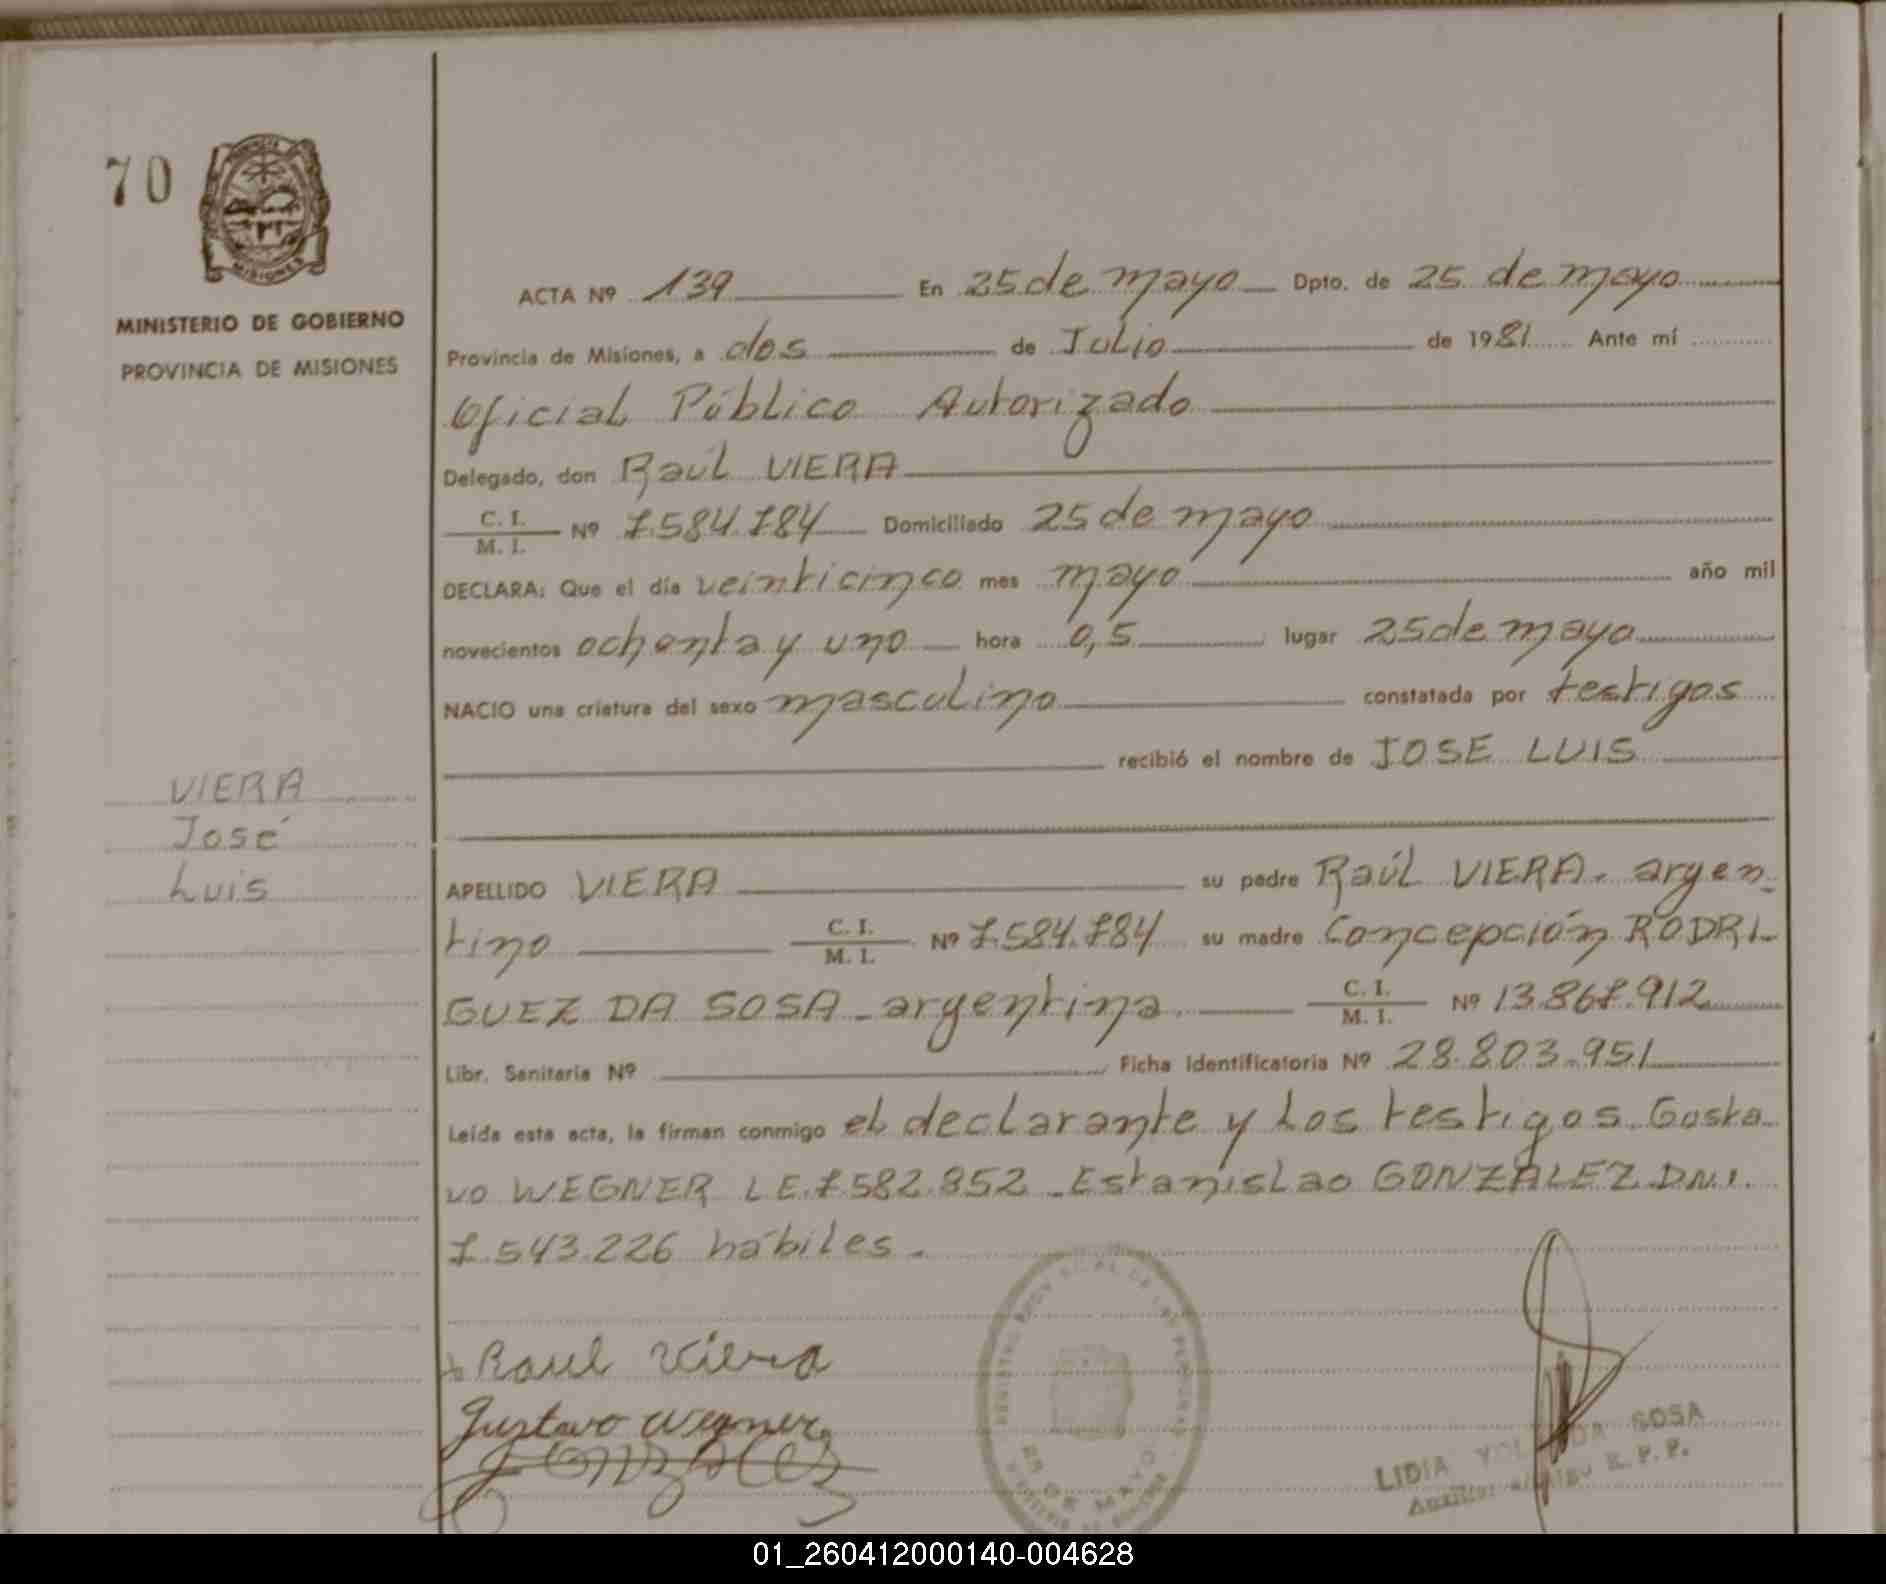 70
MISIONES
MINISTERIO DE GOBIERNO
PROVINCIA DE MISIONES
VIERA
José
Luis
ACTA Nº 139 En 25 de mayo Dpto. de 25 de mayo
Provincia de Misiones, a dos de Julio de 1981 Ante mí
Oficial Público Autorizado
Delegado, don Raúl VIERA
C. I. / M. I. Nº 7.584.784 Domiciliado 25 de mayo
DECLARA: Que el día veinticinco mes mayo año mil
novecientos ochenta y uno hora 0,5 lugar 25 de mayo
NACIO una criatura del sexo masculino constatada por testigos
recibió el nombre de JOSE LUIS
APELLIDO VIERA su padre Raúl VIERA. argen-
tino C. I. / M. I. Nº 7.584.784 su madre Concepción RODRI-
GUEZ DA SOSA - argentina. C. I. / M. I. Nº 13.867.912
Libr. Sanitaria Nº Ficha Identificatoria Nº 28.803.951
Leída esta acta, la firman conmigo el declarante y los testigos. Gusta-
vo WEGNER L E. 7.582.852 - Estanislao GONZALEZ D.N.I.
7.543.226 hábiles.
Raul Viera
Gustavo Wegner
Gonzalez
25 DE MAYO
LIDIA YOLANDA SOSA
Auxiliar R. P. P.
01_260412000140-004628